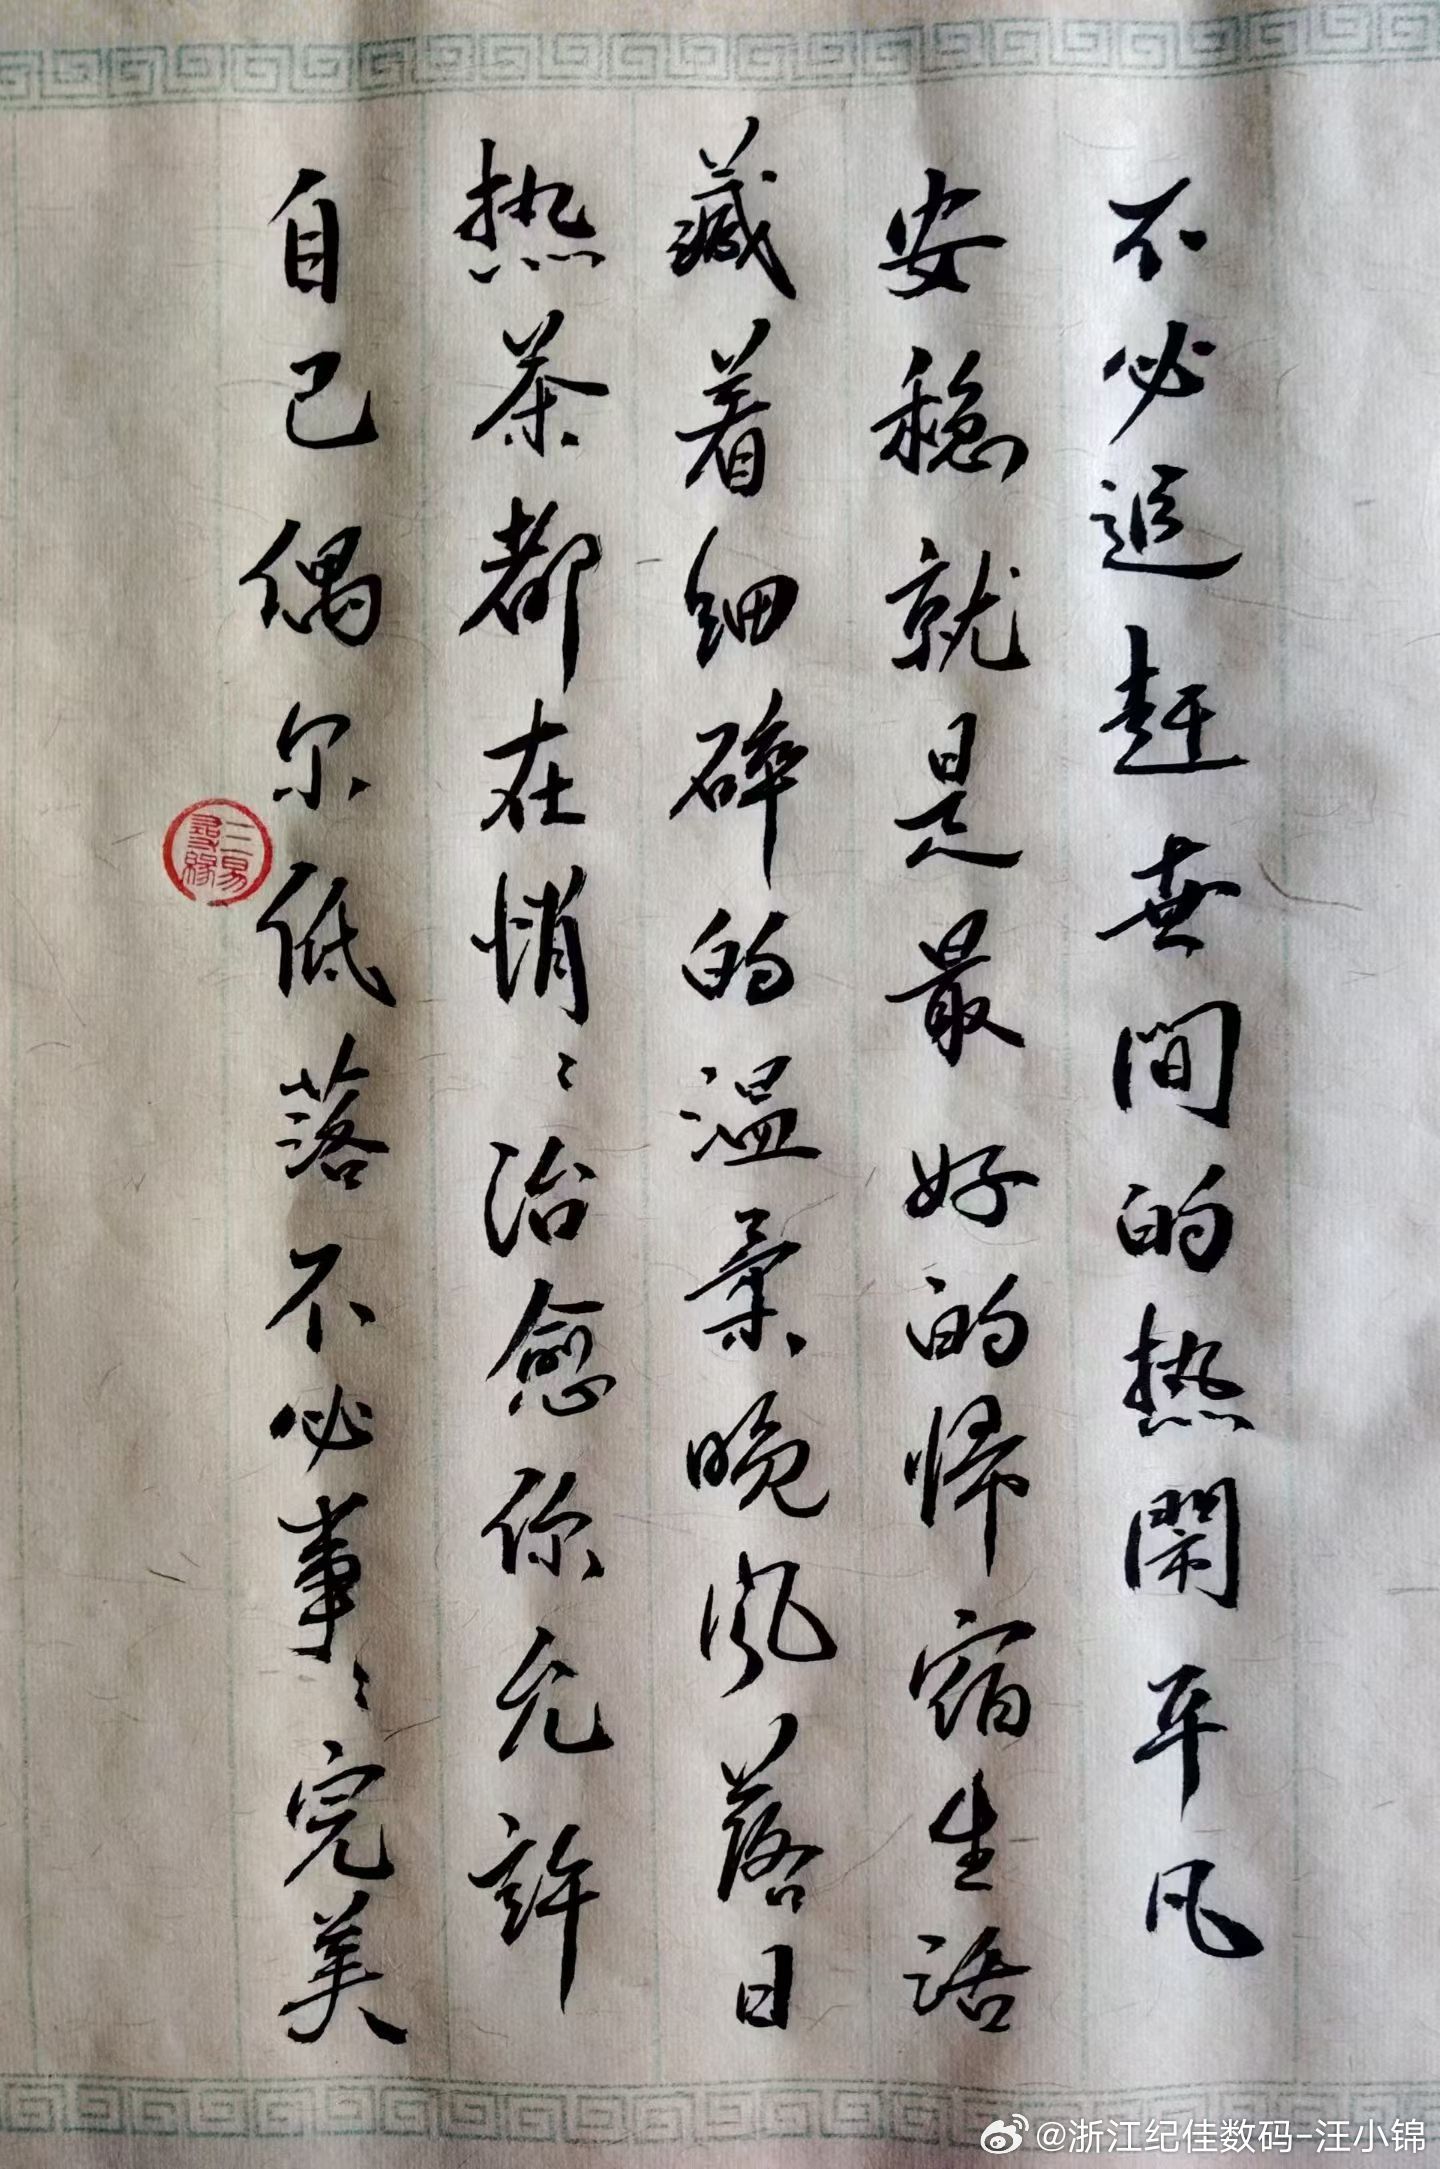 不必追赶世間的热閙平凡
安稳就是最好的帰宿生活
藏着细碎的温柔晚风落日
热茶都在悄〻治愈你允許
自己偶尔低落不必事〻完美
@浙江纪佳数码-汪小锦